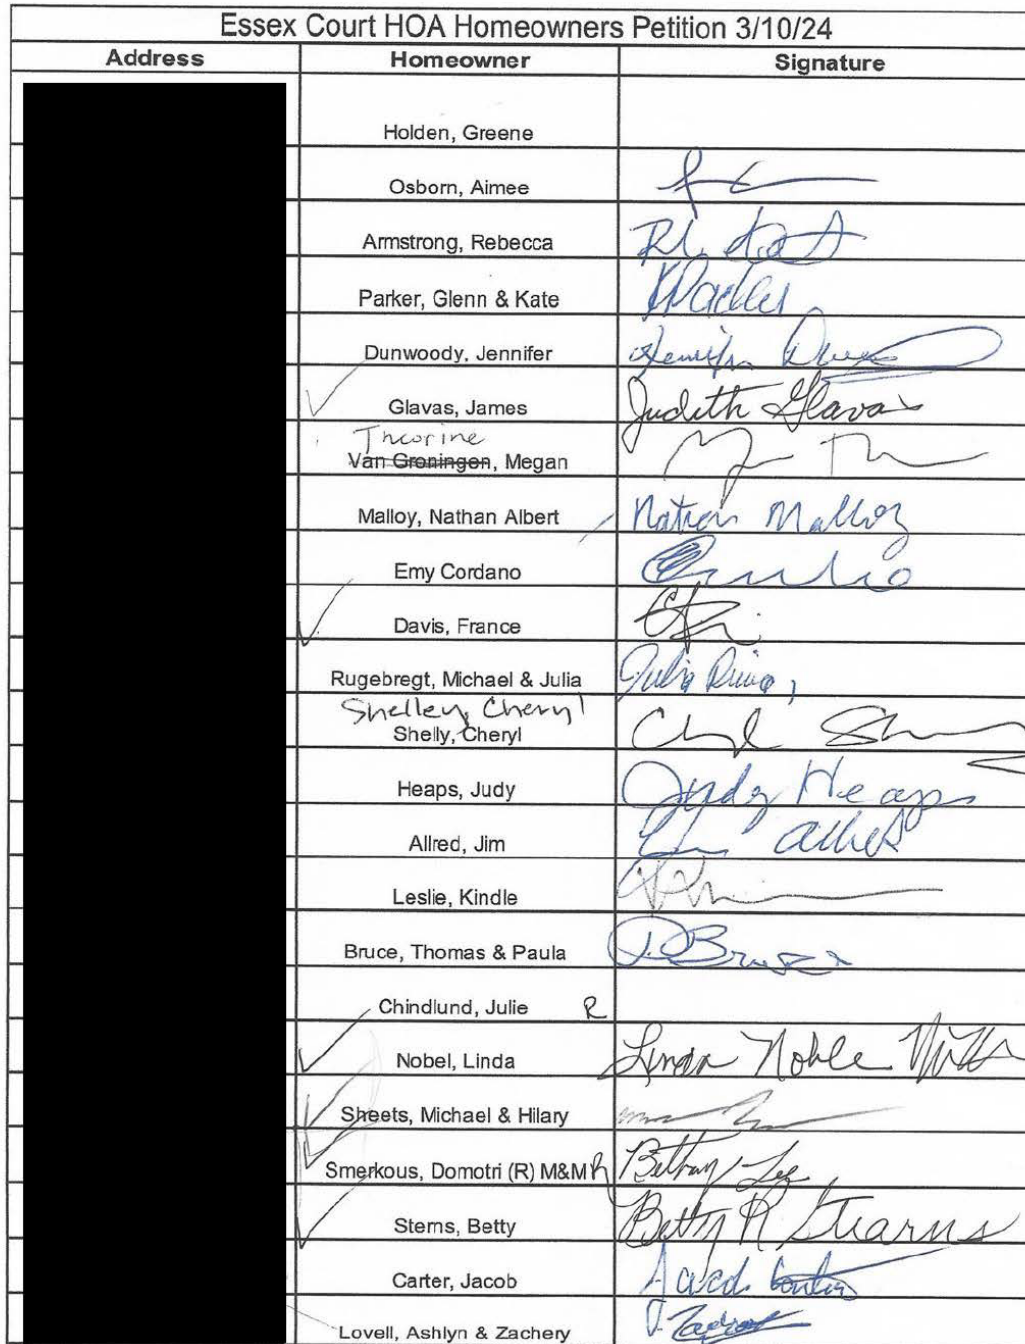 Essex Court HOA Homeowners Petition 3/10/24
Address Homeowner Signature
Holden, Greene
Osborn, Aimee
Armstrong, Rebecca
Parker, Glenn & Kate
Dunwoody, Jennifer
Glavas, James Judith Glavas
Theorine
Van Groningen, Megan
Malloy, Nathan Albert Nathan Malloy
Emy Cordano
Davis, France
Rugebregt, Michael & Julia Julia
Shelley, Cheryl
Shelly, Cheryl
Heaps, Judy Judy Heaps
Allred, Jim
Leslie, Kindle
Bruce, Thomas & Paula P. Bruce
Chindlund, Julie R
Nobel, Linda Linda Noble
Sheets, Michael & Hilary
Smerkous, Domotri (R) M&M R Bethany Lee
Sterns, Betty Betty R Stearns
Carter, Jacob
Lovell, Ashlyn & Zachery